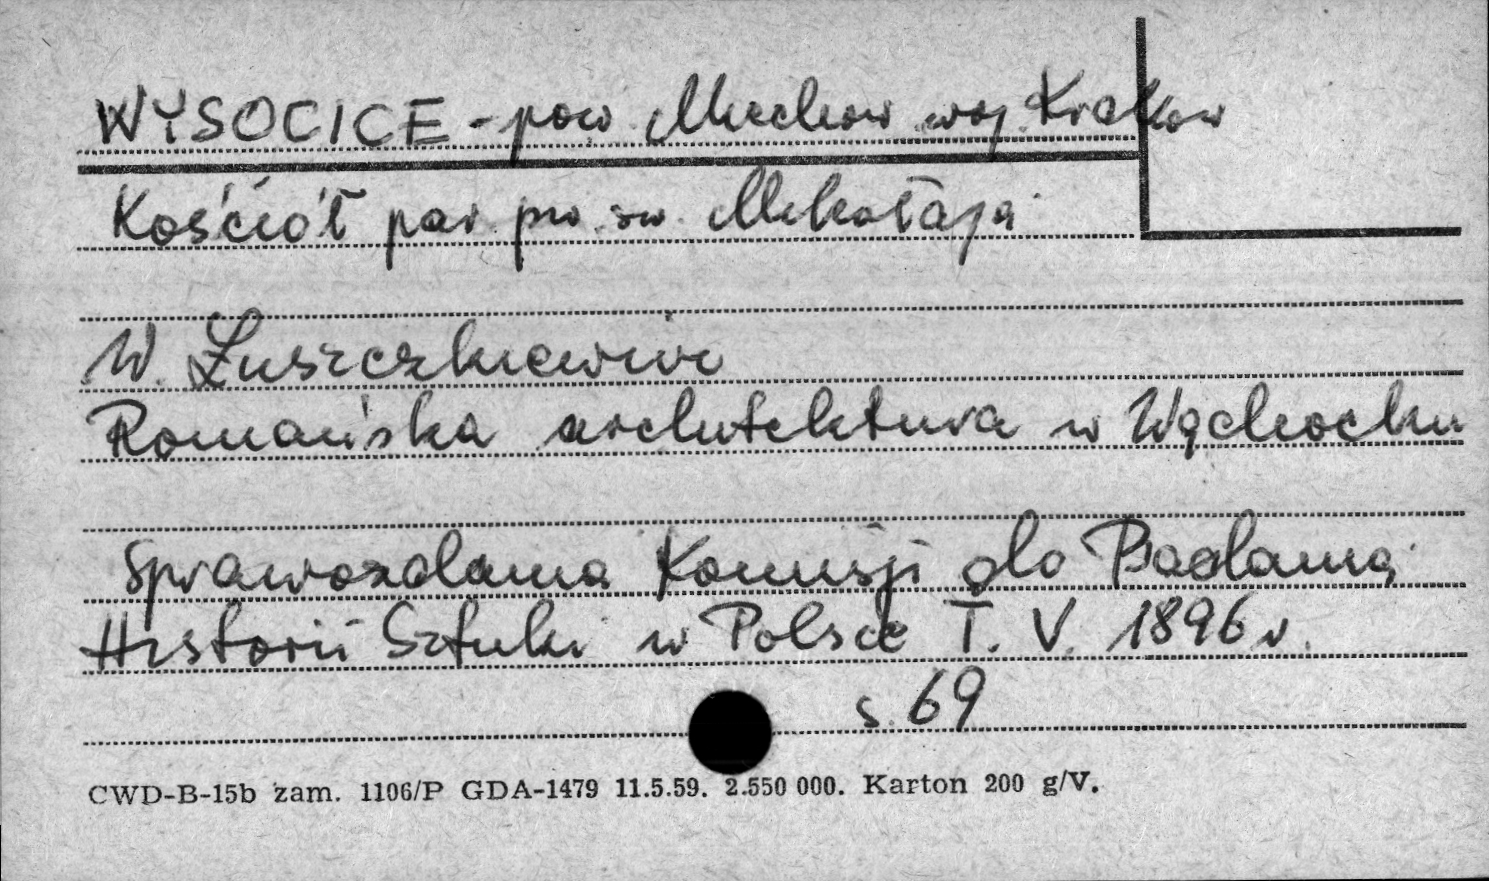 WYSOCICE - pow Miechów woj. Kraków
Kościół par. pw. św. Mikołaja
W. Łuszczkiewicz
Romańska architektura w Wąchocku
Sprawozdania Komisji do Badania
Historii Sztuki w Polsce T. V. 1896 r.
s. 69
CWD-B-15b zam. 1106/P GDA-1479 11.5.59. 2.550 000. Karton 200 g/V.